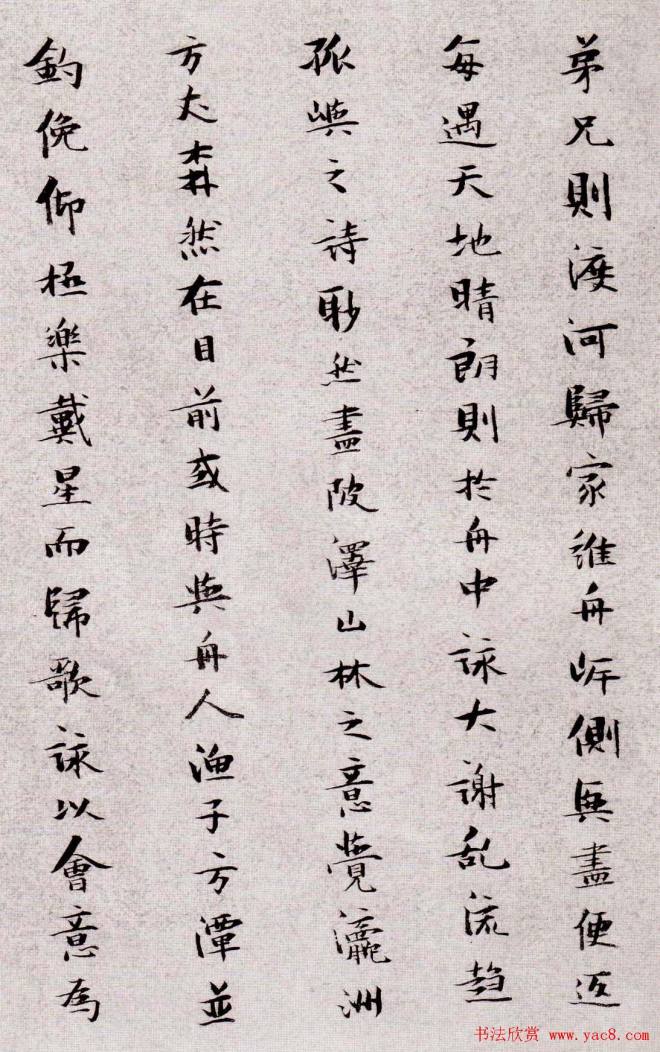 弟兄則渡河歸家維舟岸側興盡便返
每遇天地晴朗則於舟中詠大謝乱流趍
孤嶼之詩眇然盡陂澤山林之意覺瀛洲
方丈森然在目前或時與舟人漁子方潭並
釣俛仰極樂戴星而歸歌詠以會意為
书法欣赏 www.yac8.com